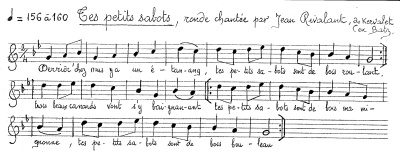 ♩ = 156 à 160 Tes petits sabots, ronde chantée par Jean Rivalant, de Kervalet
(en Batz)
Derrièr' chez nous y a un é - tang, tes pe - tits sa - bots sont de bois rou - lant.
trois beaux canards vont s'y baignant tes pe - tits sabots sont de bois ma mi -
gnonne, tes pe - tits sa - bots sont de bois